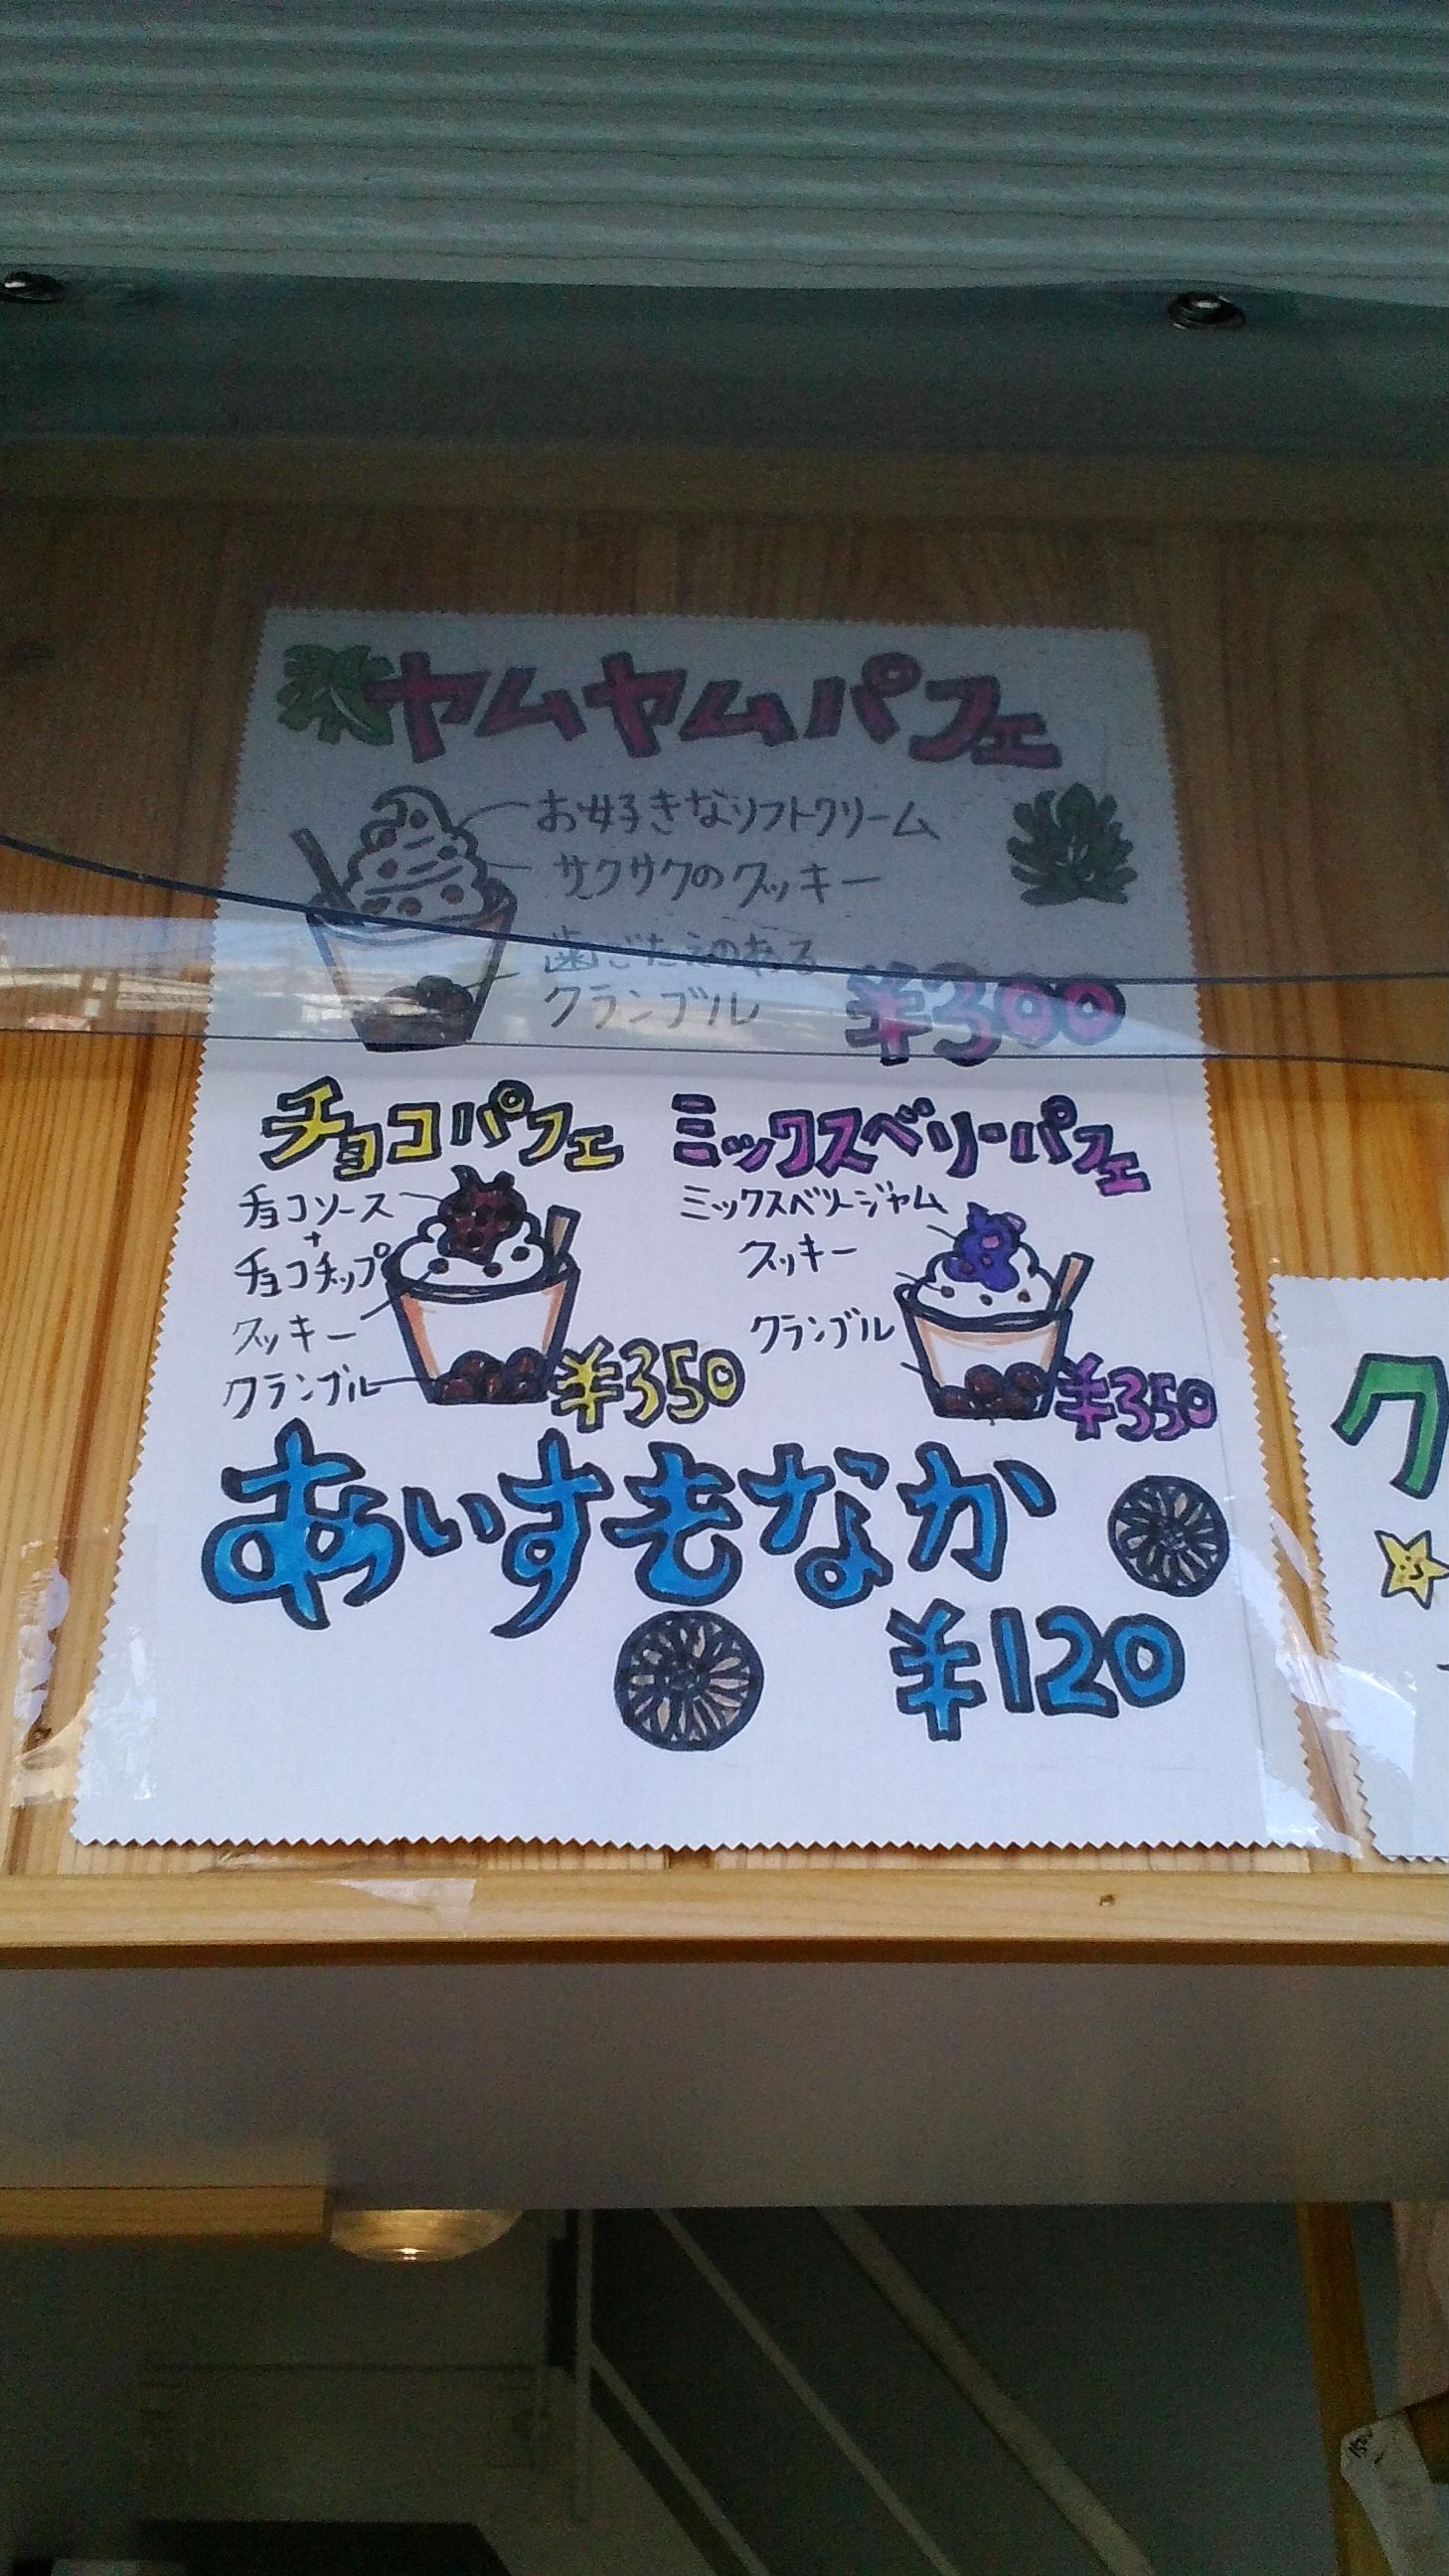 ヤムヤムパフェ
お好きなソフトクリーム
サクサクのクッキー
歯ごたえのある
クランブル
¥300
チョコパフェ
チョコソース
+
チョコチップ
クッキー
クランブル
¥350
ミックスベリーパフェ
ミックスベリージャム
クッキー
クランブル
¥350
あいすもなか
¥120
ク